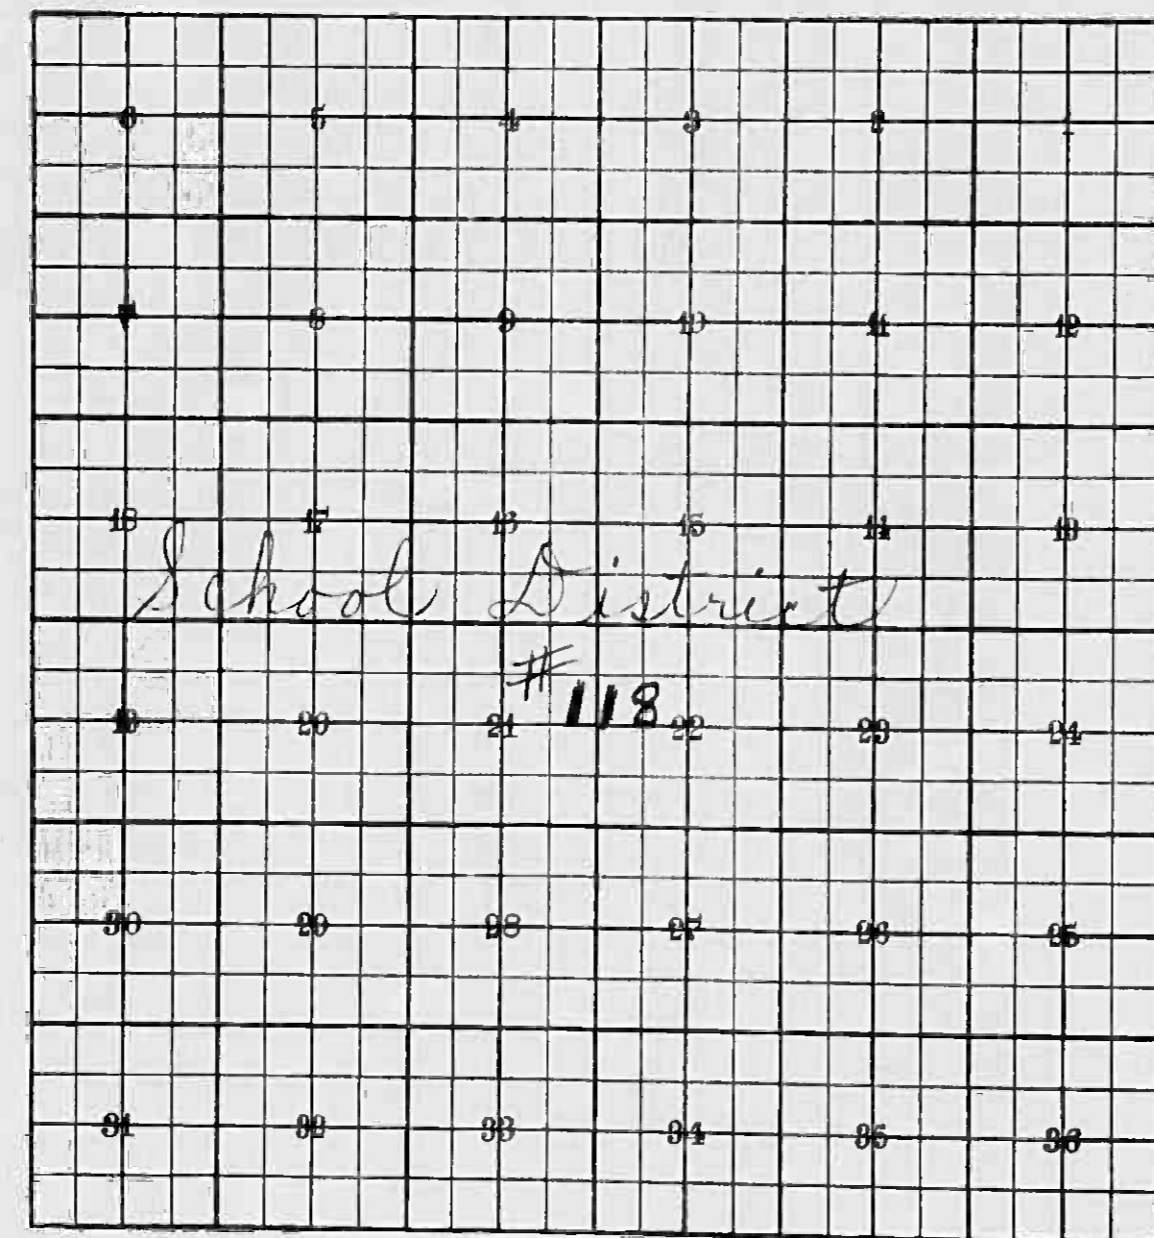 6 5 4 3 2 1
7 8 9 10 11 12
18 17 16 15 14 13
School District
# 118
19 20 21 22 23 24
30 29 28 27 26 25
31 32 33 34 35 36